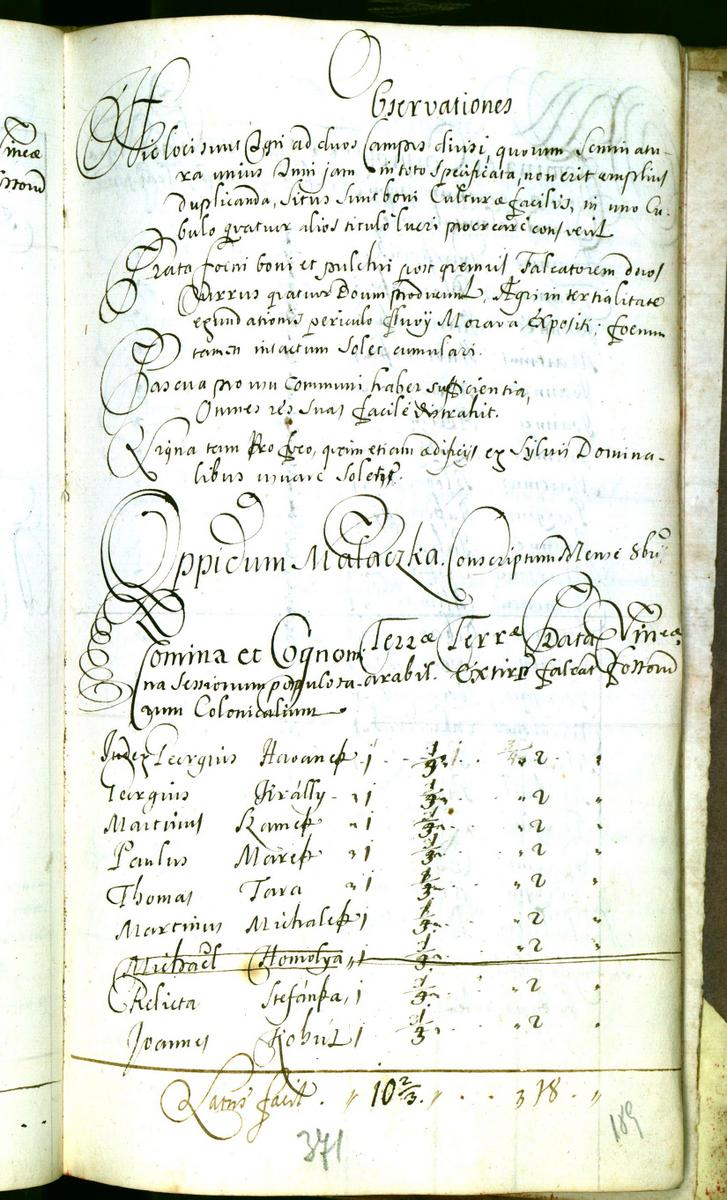 ineæ
ssorū
Observationes
Hic loci sunt Agri ad duos Campos divisi, quorum Seminatu-
ra unius Anni jam in toto specificata, non erit amplius
duplicanda, Situs sunt boni Culturæ facilis, in uno Cu-
bulo quatuor alios titulo lucri procreare consvevit
Prata foeni boni et pulchri, post quemvis Falcatorem duos
Currus quatuor Boum producunt, Agri in tertialitate
exundationis periculo fluvij Morava Expositi, foenum
tamen intactum solet cumulari.
Pascua pro usu Communi habet sufficientia,
Omnes res Suas facile distrahit.
Ligna tam Pro foco, quam etiam ædificijs ex Sylvis Domina-
libus usuare Solet.
Oppidum Malaczka. Conscriptum Mense 8bri
Nomina et Cognom Terræ Terræ Prata Vineæ
na Sessionum populosa- arabil. Extirp falcat fossorū
rum Colonicalium
Judex Georgius Havanek 1 1/3 2
Georgius Királly 1 1/3 2
Martinus Kamek 1 1/3 2
Paulus Marek 1 1/3 2
Thomas Tara 1 1/3 2
Martinus Michalek 1 1/3 2
Michael Homolya 1 1/3 2
Relicta Stefánka 1 1/3 2
Joannes Kohút 1 1/3 2
Latus facit 10 2/3 18
371
189